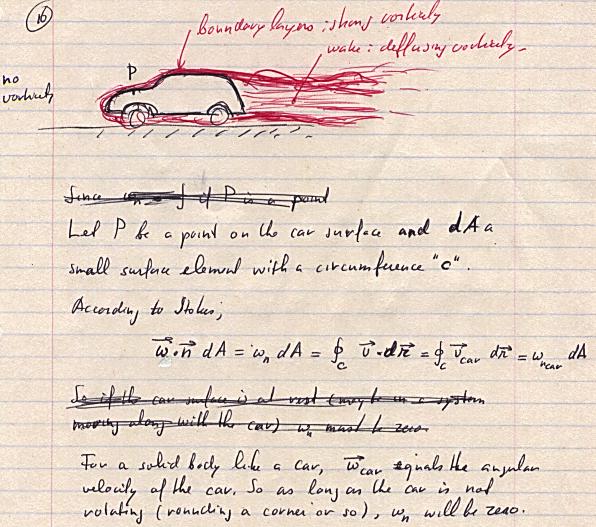 16
boundary layers: strong vorticity
wake: diffusing vorticity
no
vorticity
P
Since ω_n = ∫ if P is a point
Let P be a point on the car surface and dA a
small surface element with a circumference "c".
According to Stokes,
ω⃗·n⃗ dA = ω_n dA = ∮_c v⃗·dr⃗ = ∮_c v⃗_car dr⃗ = ω_ncar dA
So if the car surface is at rest (maybe in a system
moving along with the car) ω_n must be zero
For a solid body like a car, ω⃗_car equals the angular
velocity of the car. So as long as the car is not
rotating (rounding a corner or so), ω_n will be zero.